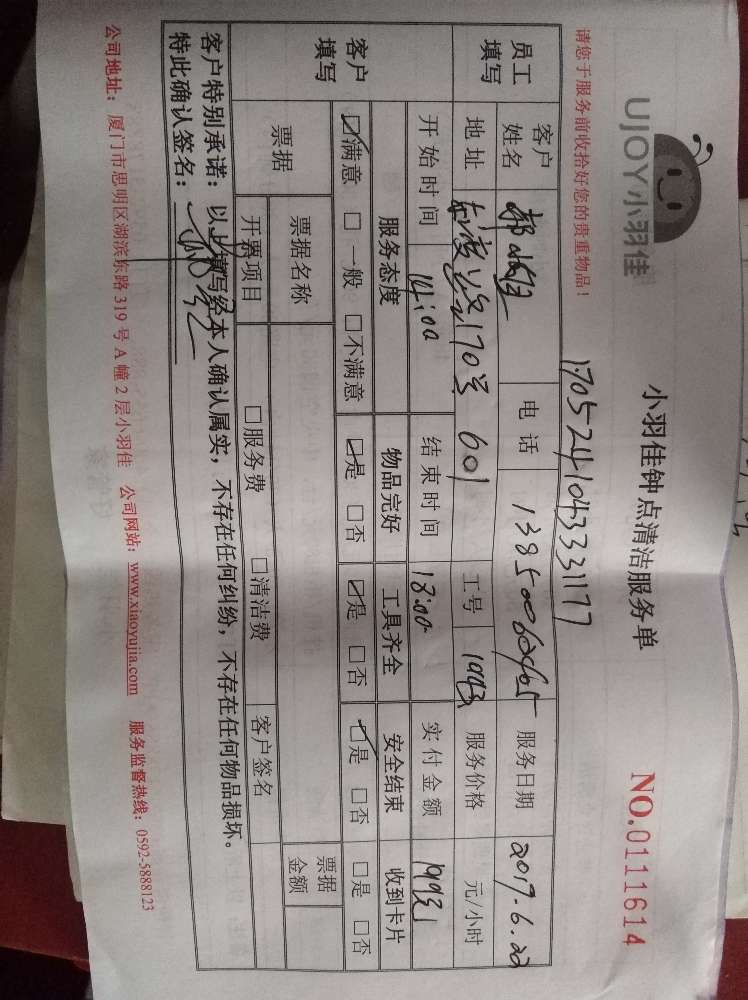 UJOY小羽佳
小羽佳钟点清洁服务单
NO.0111614
请您于服务前收拾好您的贵重物品!
17052410433331177
员工填写
客户姓名
电话
服务日期 2017.6.22
地址 170号 601
工号
服务价格 元/小时
开始时间 14:00
结束时间 18:00
实付金额
客户填写
服务态度 物品完好 工具齐全 安全结束 收到卡片
☑满意 □一般 □不满意 ☑是 □否 ☑是 □否 ☑是 □否 □是 □否
票据
票据名称
票据金额
开票项目 □服务费 □清洁费 客户签名
客户特别承诺:以上填写经本人确认属实,不存在任何纠纷,不存在任何物品损坏。
特此确认签名:
公司地址:厦门市思明区湖滨东路319号A幢2层小羽佳 公司网站:www.xiaoyujia.com 服务监督热线:0592-5888123